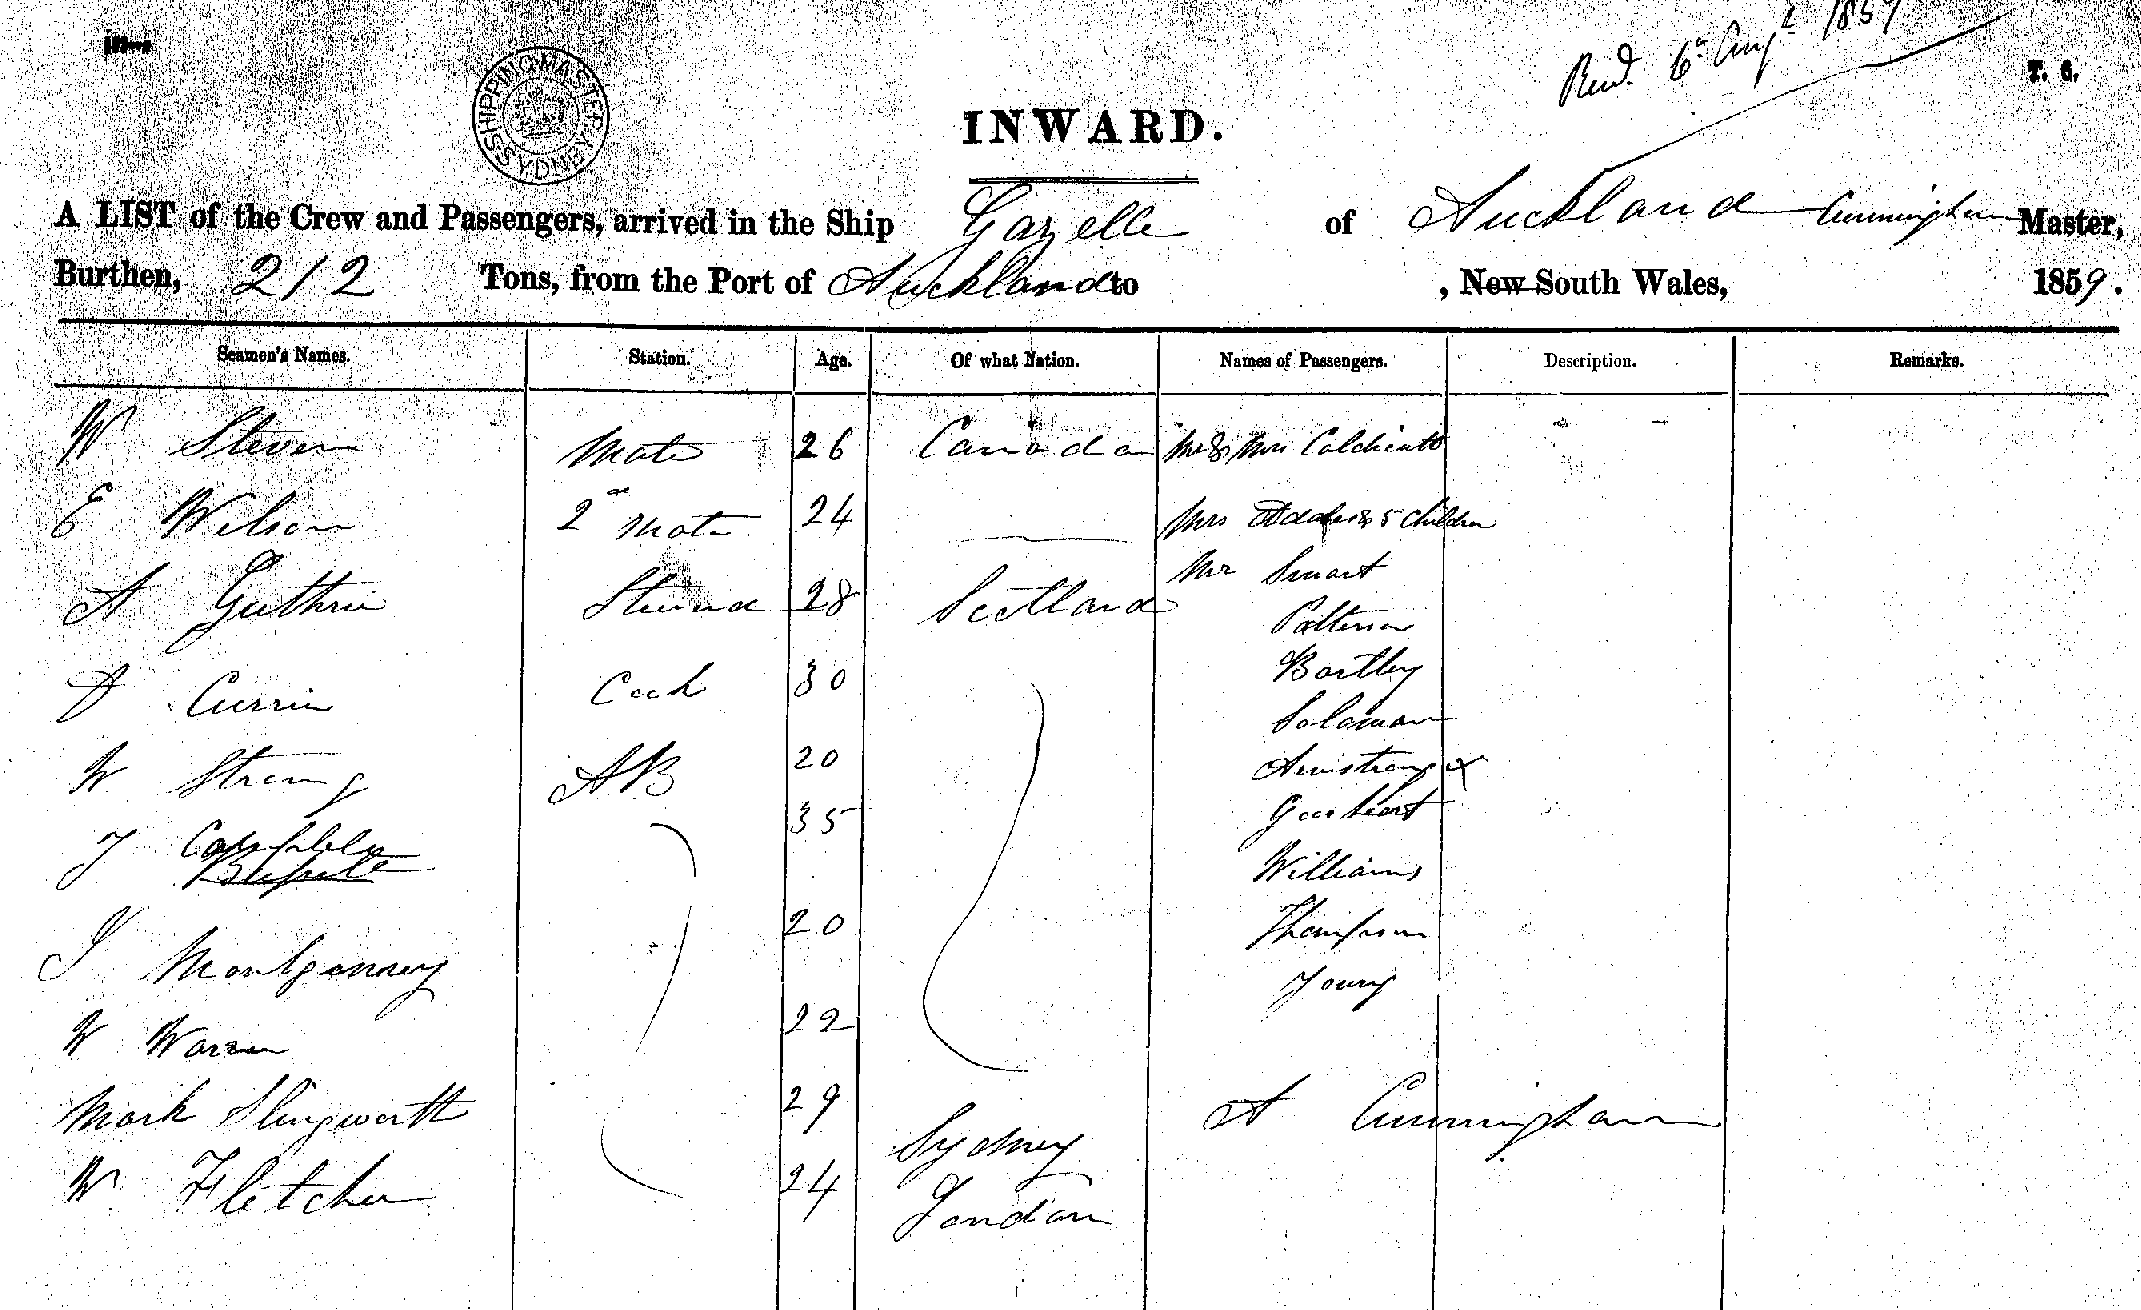 Recd. 6th Augt 1859
T. 6.
SHIPPING MASTER SYDNEY
INWARD.
A LIST of the Crew and Passengers, arrived in the Ship Gazelle of Auckland Cunningham Master,
Burthen, 212 Tons, from the Port of Auckland to , New South Wales, 1859.
Seamen's Names. Station. Age. Of what Nation. Names of Passengers. Description. Remarks.
W Steven Mate 26 Canada Mr & Mrs Coldicutt
E Wilson 2nd Mate 24 Mrs & 5 Children
Mr Smart
A Guthrie Steward 28 Scotland
Patterson
Bartley
D Currie Cook 30
Solomon
W Strang AB 20 Armstrong x
J Campbell 35
Williams
J Montgomery 20 Thompson
Young
W Warren 22
Mark Slingworth 29 Sydney A Cunningham
W Fletcher 24 London